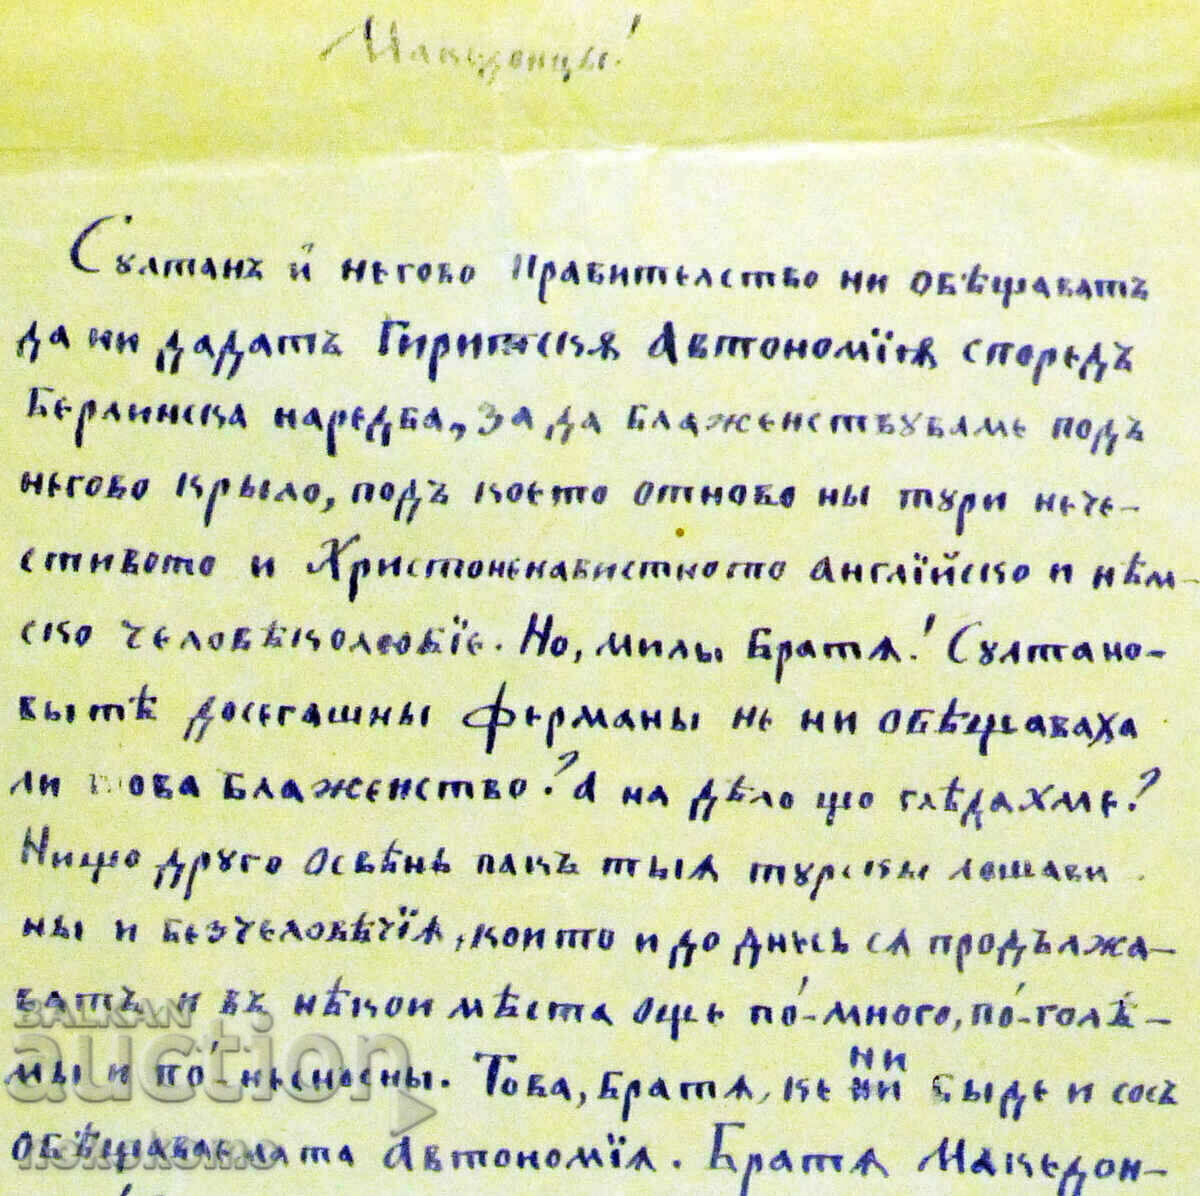 Македонцы!
Султанъ и негово правителство ни обѣщаватъ
да ни дадатъ Гиритскѫ Автономїѭ споредъ
Берлинска наредба, за да блаженствуваме подъ
негово крыло, подъ което отново ны тури нече-
стивото и Христоненавистното англїйско и нѣм-
ско человѣколюбїе. Но, милы братя! Султано-
вытѣ досегашны ферманы не ни обѣщаваха
ли това блаженство? А на дѣло що глѣдахме?
Нищо друго освѣнь пакъ тыя турскы лошави
ны и безчеловѣчїя, които и до днесь ся продължа-
ватъ и въ нѣкои мѣста още по́-много, по́-голѣ-
мы и по́-несносны. Това, братя, ке ни быде и съсъ
обѣщаваемата Автономїя. Братя Македон-
BALKAN
auction